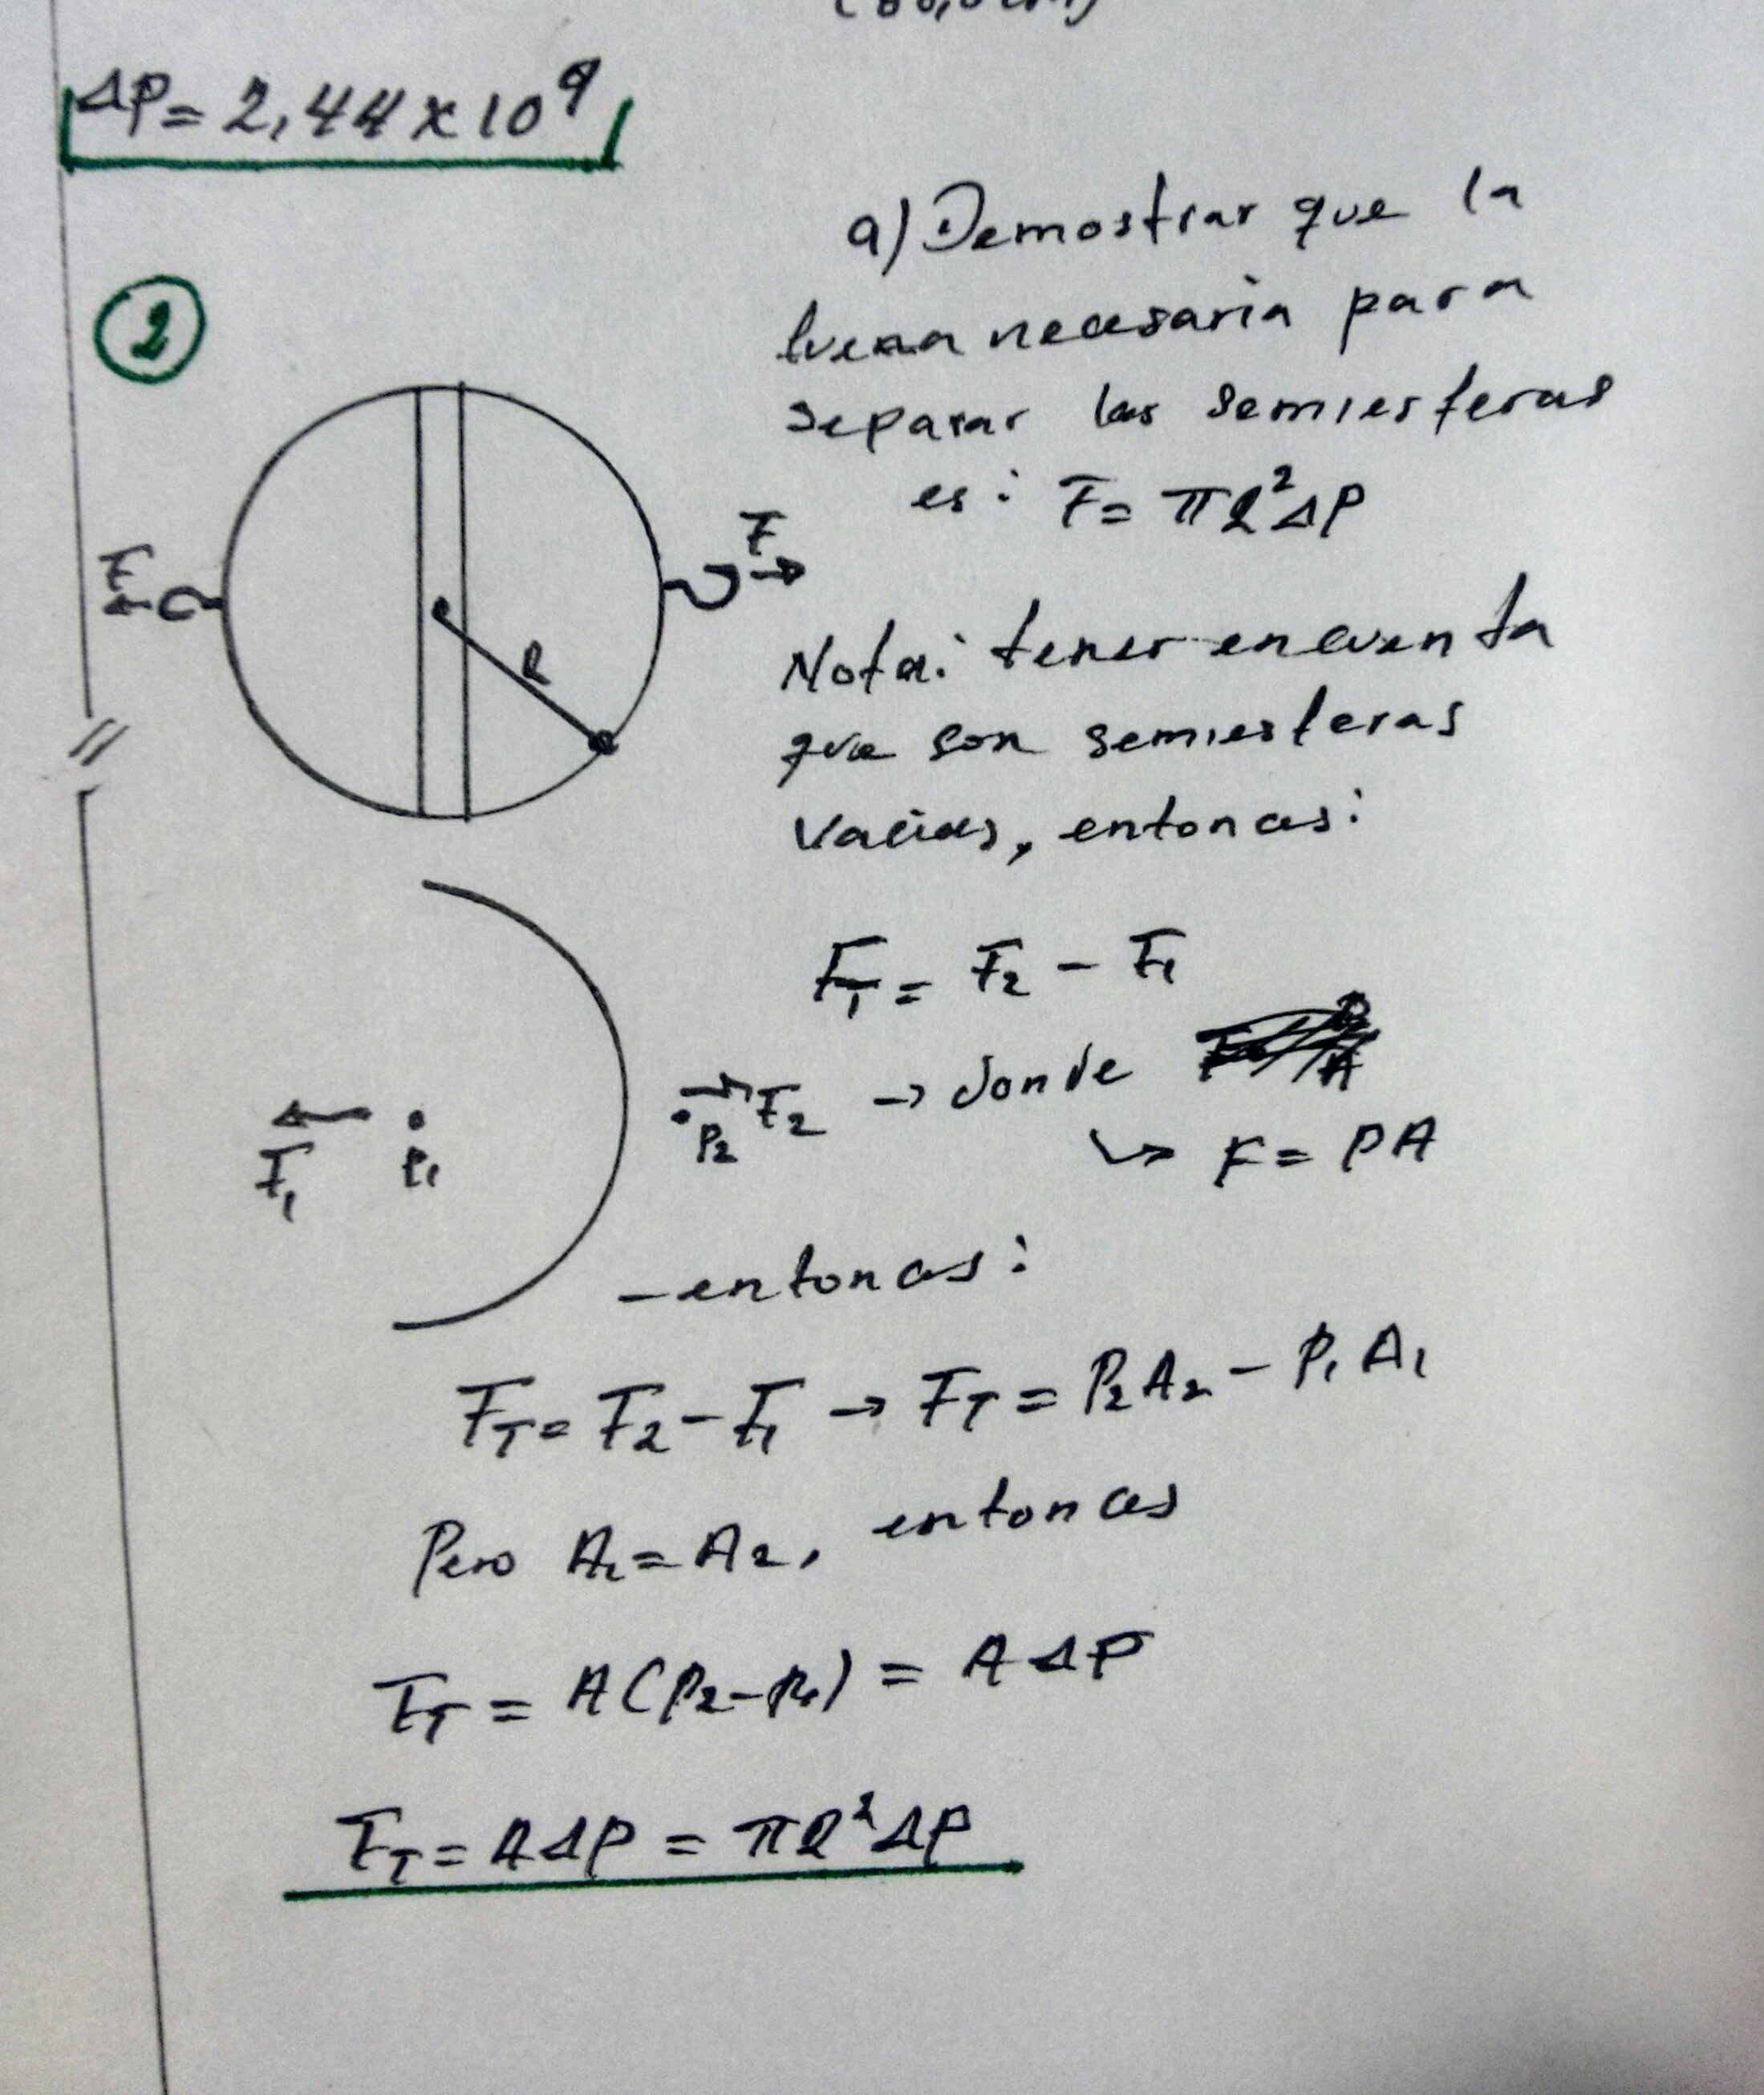 ΔP = 2,44 x 10⁹
2
a) Demostrar que la
fuerza necesaria para
separar las semiesferas
es: F = πR²ΔP
F
F
R
Nota: tener encuenta
que son semiesferas
vacias, entonces:
F_T = F₂ - F₁
F₁
P₁
P₂
F₂ → donde
↳ F = PA
- entonces:
F_T = F₂ - F₁ → F_T = P₂A₂ - P₁A₁
Pero A₁ = A₂, entonces
F_T = A(P₂ - P₁) = AΔP
F_T = AΔP = πR²ΔP